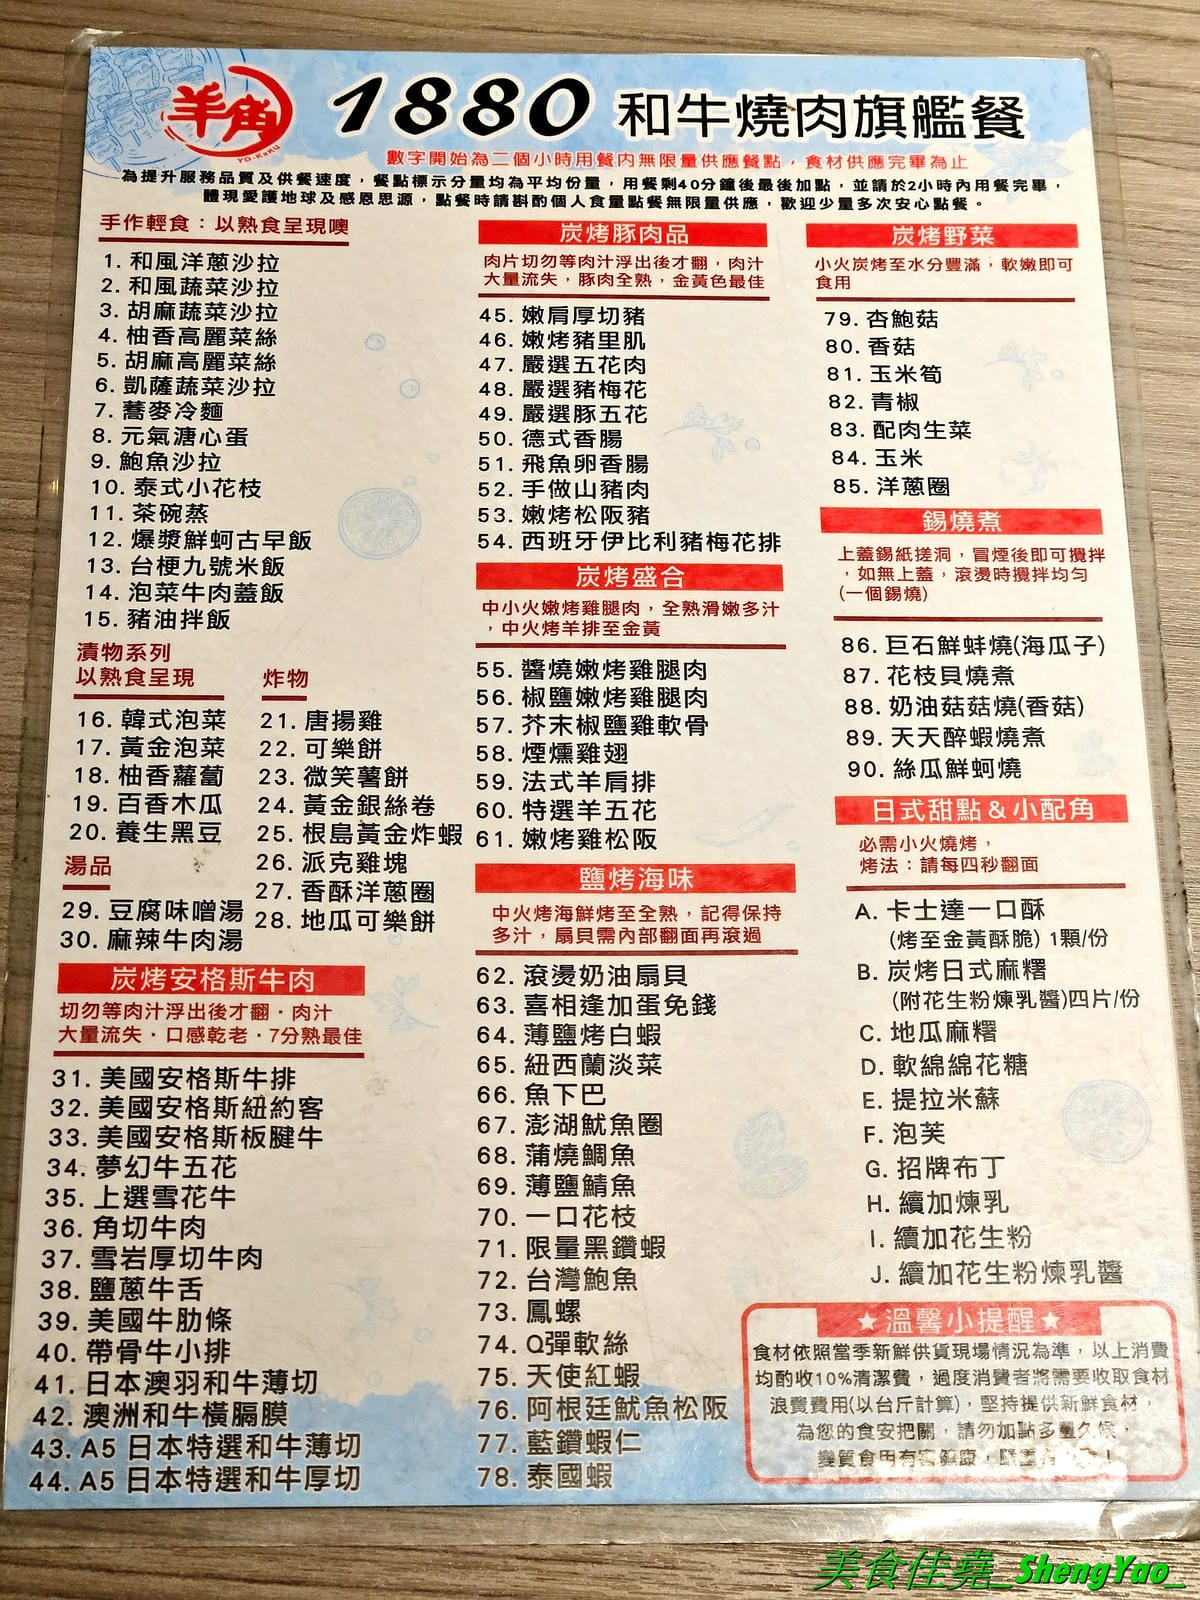 羊角
YO-KaKU
1880 和牛燒肉旗艦餐
數字開始為二個小時用餐內無限量供應餐點，食材供應完畢為止
為提升服務品質及供餐速度，餐點標示分量均為平均份量，用餐剩40分鐘後最後加點，並請於2小時內用餐完畢，
體現愛護地球及感恩思源，點餐時請斟酌個人食量點餐無限量供應，歡迎少量多次安心點餐。
手作輕食：以熟食呈現噢
1. 和風洋蔥沙拉
2. 和風蔬菜沙拉
3. 胡麻蔬菜沙拉
4. 柚香高麗菜絲
5. 胡麻高麗菜絲
6. 凱薩蔬菜沙拉
7. 蕎麥冷麵
8. 元氣溏心蛋
9. 鮑魚沙拉
10. 泰式小花枝
11. 茶碗蒸
12. 爆漿鮮蚵古早飯
13. 台梗九號米飯
14. 泡菜牛肉蓋飯
15. 豬油拌飯
漬物系列
以熟食呈現
16. 韓式泡菜
17. 黃金泡菜
18. 柚香蘿蔔
19. 百香木瓜
20. 養生黑豆
炸物
21. 唐揚雞
22. 可樂餅
23. 微笑薯餅
24. 黃金銀絲卷
25. 根島黃金炸蝦
26. 派克雞塊
27. 香酥洋蔥圈
28. 地瓜可樂餅
湯品
29. 豆腐味噌湯
30. 麻辣牛肉湯
炭烤安格斯牛肉
切勿等肉汁浮出後才翻．肉汁
大量流失．口感乾老．7分熟最佳
31. 美國安格斯牛排
32. 美國安格斯紐約客
33. 美國安格斯板腱牛
34. 夢幻牛五花
35. 上選雪花牛
36. 角切牛肉
37. 雪岩厚切牛肉
38. 鹽蔥牛舌
39. 美國牛肋條
40. 帶骨牛小排
41. 日本澳羽和牛薄切
42. 澳洲和牛橫膈膜
43. A5 日本特選和牛薄切
44. A5 日本特選和牛厚切
炭烤豚肉品
肉片切勿等肉汁浮出後才翻，肉汁
大量流失，豚肉全熟，金黃色最佳
45. 嫩肩厚切豬
46. 嫩烤豬里肌
47. 嚴選五花肉
48. 嚴選豬梅花
49. 嚴選豚五花
50. 德式香腸
51. 飛魚卵香腸
52. 手做山豬肉
53. 嫩烤松阪豬
54. 西班牙伊比利豬梅花排
炭烤盛合
中小火嫩烤雞腿肉，全熟滑嫩多汁
，中火烤羊排至金黃
55. 醬燒嫩烤雞腿肉
56. 椒鹽嫩烤雞腿肉
57. 芥末椒鹽雞軟骨
58. 煙燻雞翅
59. 法式羊肩排
60. 特選羊五花
61. 嫩烤雞松阪
鹽烤海味
中火烤海鮮烤至全熟，記得保持
多汁，扇貝需內部翻面再滾過
62. 滾燙奶油扇貝
63. 喜相逢加蛋免錢
64. 薄鹽烤白蝦
65. 紐西蘭淡菜
66. 魚下巴
67. 澎湖魷魚圈
68. 蒲燒鯛魚
69. 薄鹽鯖魚
70. 一口花枝
71. 限量黑鑽蝦
72. 台灣鮑魚
73. 鳳螺
74. Q彈軟絲
75. 天使紅蝦
76. 阿根廷魷魚松阪
77. 藍鑽蝦仁
78. 泰國蝦
炭烤野菜
小火炭烤至水分豐滿，軟嫩即可
食用
79. 杏鮑菇
80. 香菇
81. 玉米筍
82. 青椒
83. 配肉生菜
84. 玉米
85. 洋蔥圈
錫燒煮
上蓋錫紙搓洞，冒煙後即可攪拌
，如無上蓋，滾燙時攪拌均勻
(一個錫燒)
86. 巨石鮮蚌燒(海瓜子)
87. 花枝貝燒煮
88. 奶油菇菇燒(香菇)
89. 天天醉蝦燒煮
90. 絲瓜鮮蚵燒
日式甜點＆小配角
必需小火燒烤，
烤法：請每四秒翻面
A. 卡士達一口酥
(烤至金黃酥脆) 1顆/份
B. 炭烤日式麻糬
(附花生粉煉乳醬)四片/份
C. 地瓜麻糬
D. 軟綿綿花糖
E. 提拉米蘇
F. 泡芙
G. 招牌布丁
H. 續加煉乳
I. 續加花生粉
J. 續加花生粉煉乳醬
★溫馨小提醒★
食材依照當季新鮮供貨現場情況為準，以上消費
均酌收10%清潔費，過度消費者將需要收取食材
浪費費用(以台斤計算)，堅持提供新鮮食材，
為您的食安把關，請勿加點多量久候，
變質食用有害健康，
美食佳堯_ShengYao_